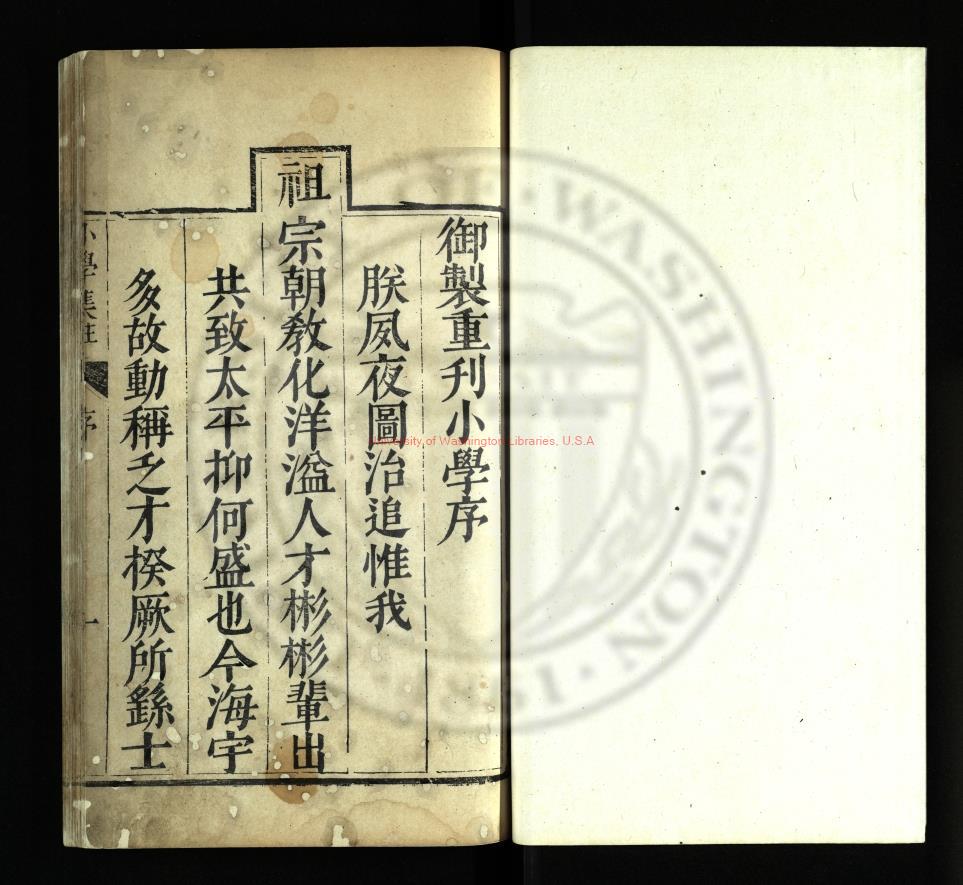 御製重刋小學序
朕夙夜圖治追惟我
祖宗朝敎化洋溢人才彬彬輩出
共致太平抑何盛也今海宇
多故動稱乏才揆厥所繇士
小學集註 序 一
University of Washington Libraries, U.S.A
OF WASHINGTON
1861